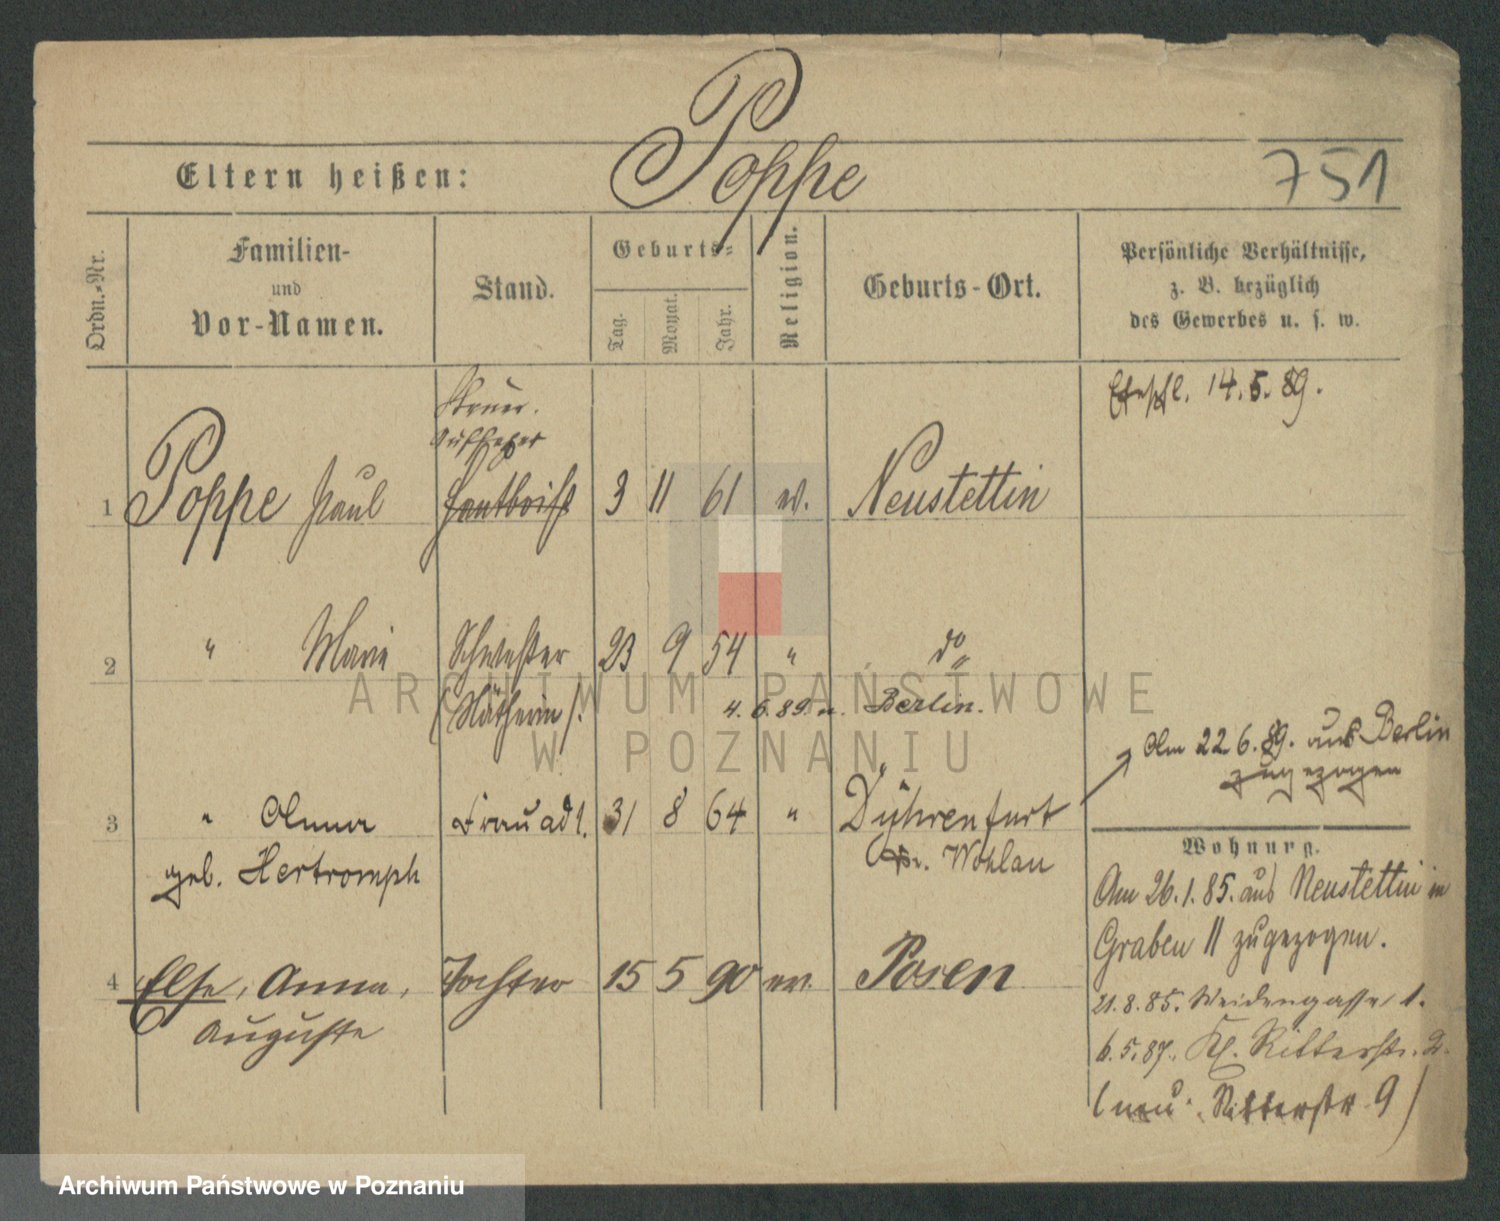 Poppe
Eltern heißen:
751
Ordn.-Nr.
Familien-
und
Vor-Namen.
Stand.
Geburts-
Tag.
Monat.
Jahr.
Religion.
Geburts-Ort.
Persönliche Verhältnisse,
z. B. bezüglich
des Gewerbes u. s. w.
14. 5. 89.
Steuer.
Aufseher
1 Poppe Paul 3 11 61 ev. Neustettin
2 " Marie Schwester 23 9 54 " do
(Nätherin). 4. 6. 89. n. Berlin.
Am 22. 6. 89. aus Berlin
zugezogen
3 " Anna Frau ad 1. 31 8 64 " Dyhrenfurt
geb. Hertromph Kr. Wohlau
Wohnung.
Am 26. 1. 85. aus Neustettin in
Graben 11 zugezogen.
4 Else, Anna, Tochter 15 5 90 ev. Posen
Auguste
21. 8. 85. Weidengasse 1.
6. 5. 87. Kl. Ritterstr. 2.
(neu Ritterstr 9)
ARCHIWUM PAŃSTWOWE
W POZNANIU
Archiwum Państwowe w Poznaniu